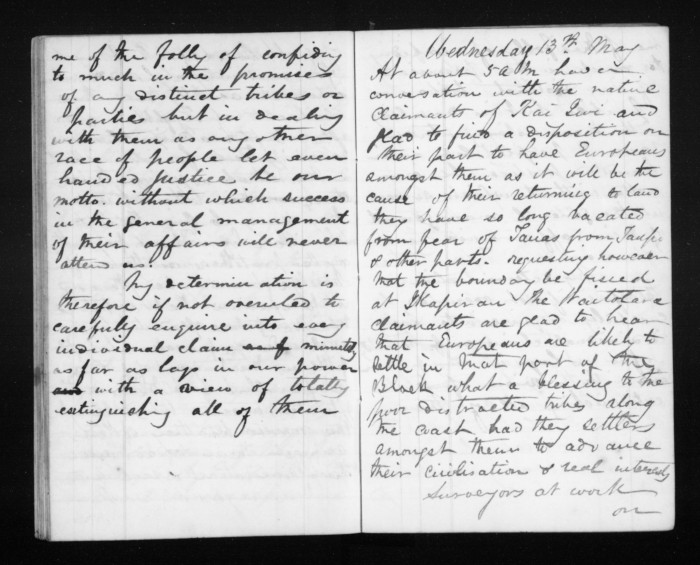 me of the folly of confiding
to much in the promises
of any distinct tribes or
parties but in dealing
with them as any other
race of people let even
handed Justice be our
motto. without which success
in the general management
of their affairs will never
atten us.
My determination is
therefore if not overruled to
carefully enquire into every
individual claim as if minutely
as far as lays in our power
and with a view of totally
extinguishing all of them
Wednesday 13th May
At about 5 a m had a
conversation with the native
Claimants of Kai Iwi and
glad to find a disposition on
their part to have Europeans
amongst them as it will be the
cause of their returning to land
they have so long vacated
from fear of Tauas from Taupo
& other parts. requesting however
that the boundary be fixed
at the Waitotara
Claimants are glad to hear
that Europeans are likely to
settle in that part of the
Block what a blessing to the
poor distracted tribes along
the coast had they settlers
amongst them to advance
their civilisation & real interests
Surveyors at work
on